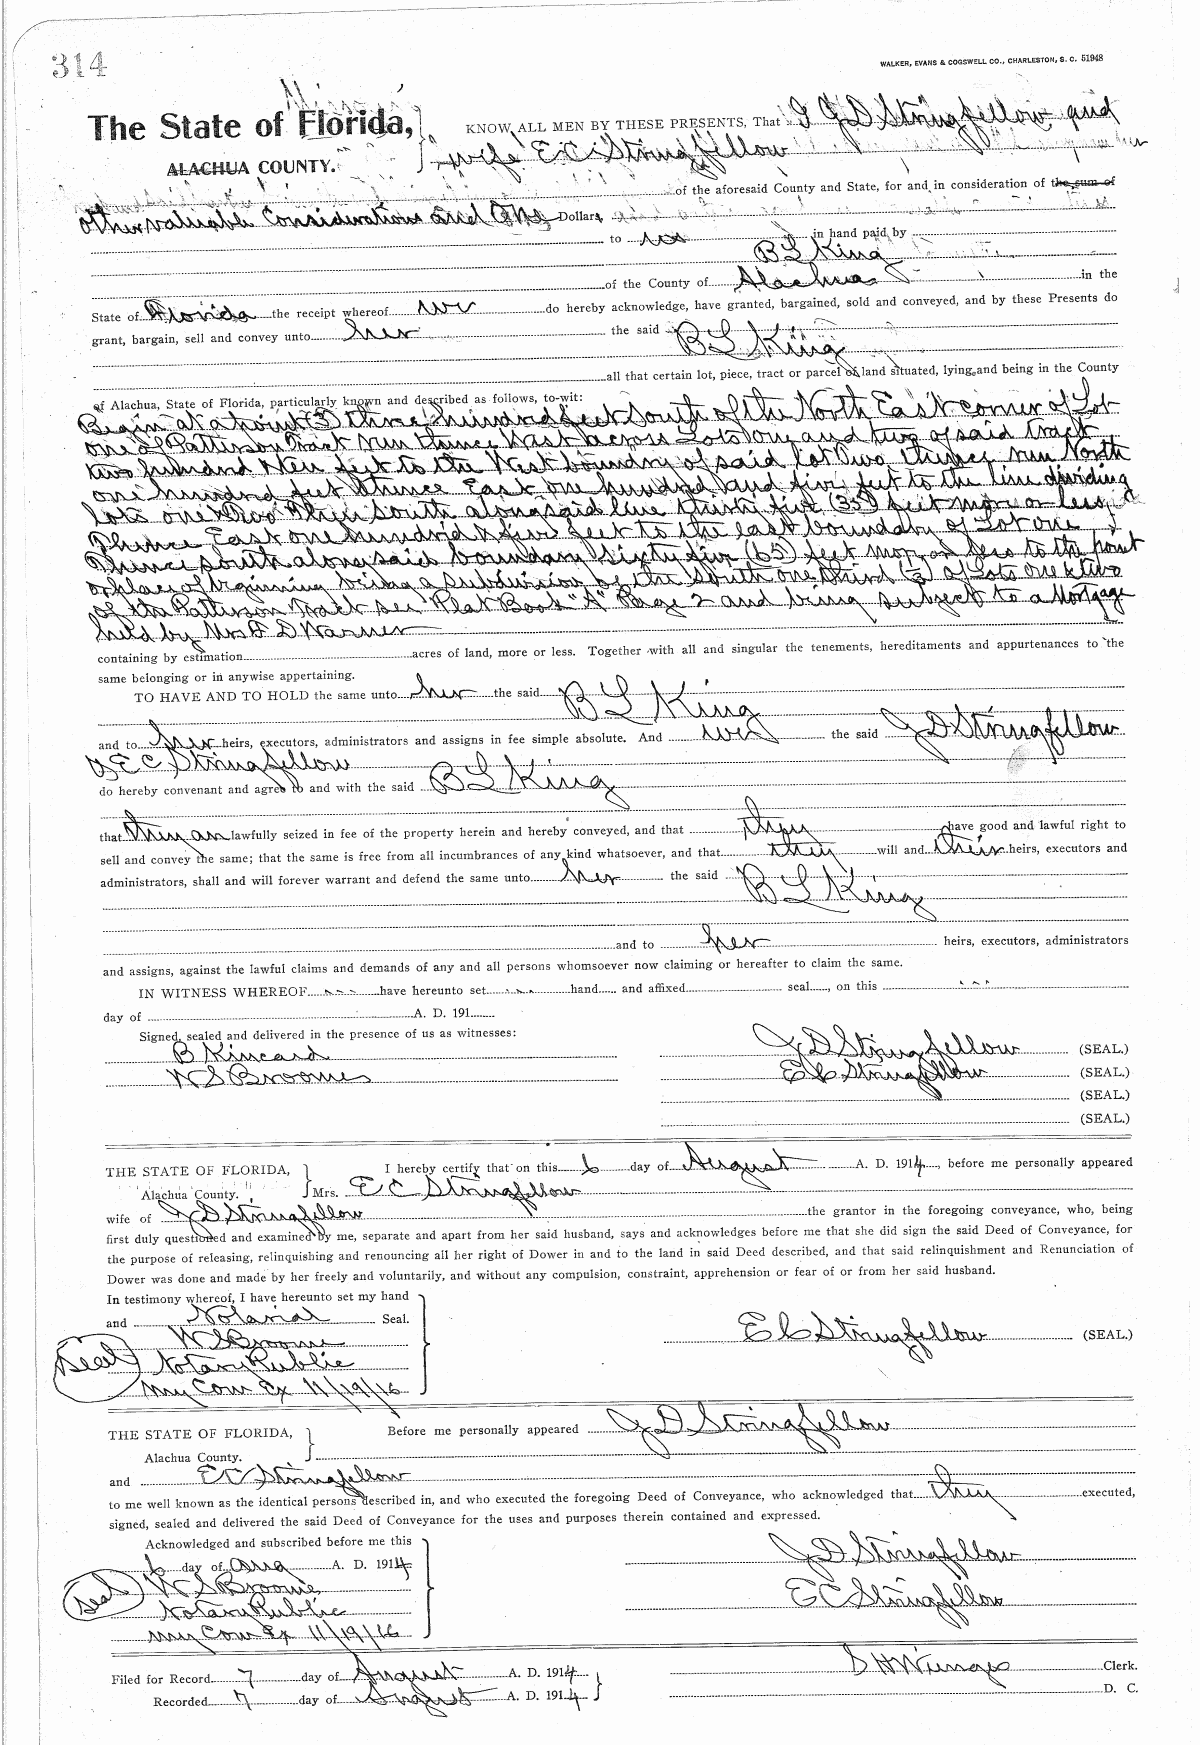 314
WALKER, EVANS & COGSWELL CO., CHARLESTON, S. C. 51948
The State of Florida,
ALACHUA COUNTY.
KNOW ALL MEN BY THESE PRESENTS, That I J D Stringfellow and
wife E C Stringfellow
of the aforesaid County and State, for and in consideration of the sum of
other valuable Considerations and One Dollars
to us in hand paid by
B L King
of the County of Alachua in the
State of Florida the receipt whereof we do hereby acknowledge, have granted, bargained, sold and conveyed, and by these Presents do
grant, bargain, sell and convey unto her the said B L King
all that certain lot, piece, tract or parcel of land situated, lying and being in the County
of Alachua, State of Florida, particularly known and described as follows, to-wit:
Begin at a point (3) three hundred feet South of the North East corner of Lot
one of Patterson Tract run thence West across Lots one and two of said tract
two hundred & ten feet to the West boundry of said lot two thence run North
one hundred feet thence East one hundred and five feet to the line dividing
lots one & two then south along said line thirty five (35) feet more or less
Thence East one hundred & five feet to the east boundary of Lot one
Thence south along said boundary sixty five (65) feet more or less to the point
or place of beginning being a subdivision of the south one third (1/3) of Lots one & two
of the Patterson tract see Plat Book "A" Page 2 and being subject to a Mortgage
held by Mrs F D Warner
containing by estimation acres of land, more or less. Together with all and singular the tenements, hereditaments and appurtenances to the
same belonging or in anywise appertaining.
TO HAVE AND TO HOLD the same unto her the said B L King
and to her heirs, executors, administrators and assigns in fee simple absolute. And we the said J D Stringfellow
& E C Stringfellow
do hereby convenant and agree to and with the said B L King
that they are lawfully seized in fee of the property herein and hereby conveyed, and that they have good and lawful right to
sell and convey the same; that the same is free from all incumbrances of any kind whatsoever, and that they will and their heirs, executors and
administrators, shall and will forever warrant and defend the same unto her the said B L King
and to her heirs, executors, administrators
and assigns, against the lawful claims and demands of any and all persons whomsoever now claiming or hereafter to claim the same.
IN WITNESS WHEREOF - - - have hereunto set - - - hand and affixed seal, on this - - -
day of A. D. 191
Signed, sealed and delivered in the presence of us as witnesses:
B Kincard J D Stringfellow (SEAL.)
W S Broome E C Stringfellow (SEAL.)
(SEAL.)
(SEAL.)
THE STATE OF FLORIDA, I hereby certify that on this 6 day of August A. D. 1914, before me personally appeared
Alachua County. Mrs. E C Stringfellow
wife of J D Stringfellow the grantor in the foregoing conveyance, who, being
first duly questioned and examined by me, separate and apart from her said husband, says and acknowledges before me that she did sign the said Deed of Conveyance, for
the purpose of releasing, relinquishing and renouncing all her right of Dower in and to the land in said Deed described, and that said relinquishment and Renunciation of
Dower was done and made by her freely and voluntarily, and without any compulsion, constraint, apprehension or fear of or from her said husband.
In testimony whereof, I have hereunto set my hand
and Notarial Seal.
W S Broome E C Stringfellow (SEAL.)
Seal Notary Public
My Com Ex 11/19/16
THE STATE OF FLORIDA, Before me personally appeared J D Stringfellow
Alachua County.
and E C Stringfellow
to me well known as the identical persons described in, and who executed the foregoing Deed of Conveyance, who acknowledged that they executed,
signed, sealed and delivered the said Deed of Conveyance for the uses and purposes therein contained and expressed.
Acknowledged and subscribed before me this
6 day of Aug A. D. 1914 J D Stringfellow
Seal W S Broome E C Stringfellow
Notary Public
My Com Ex 11/19/16
Filed for Record 7 day of August A. D. 1914 S H Wienges Clerk.
Recorded 7 day of August A. D. 1914 D. C.